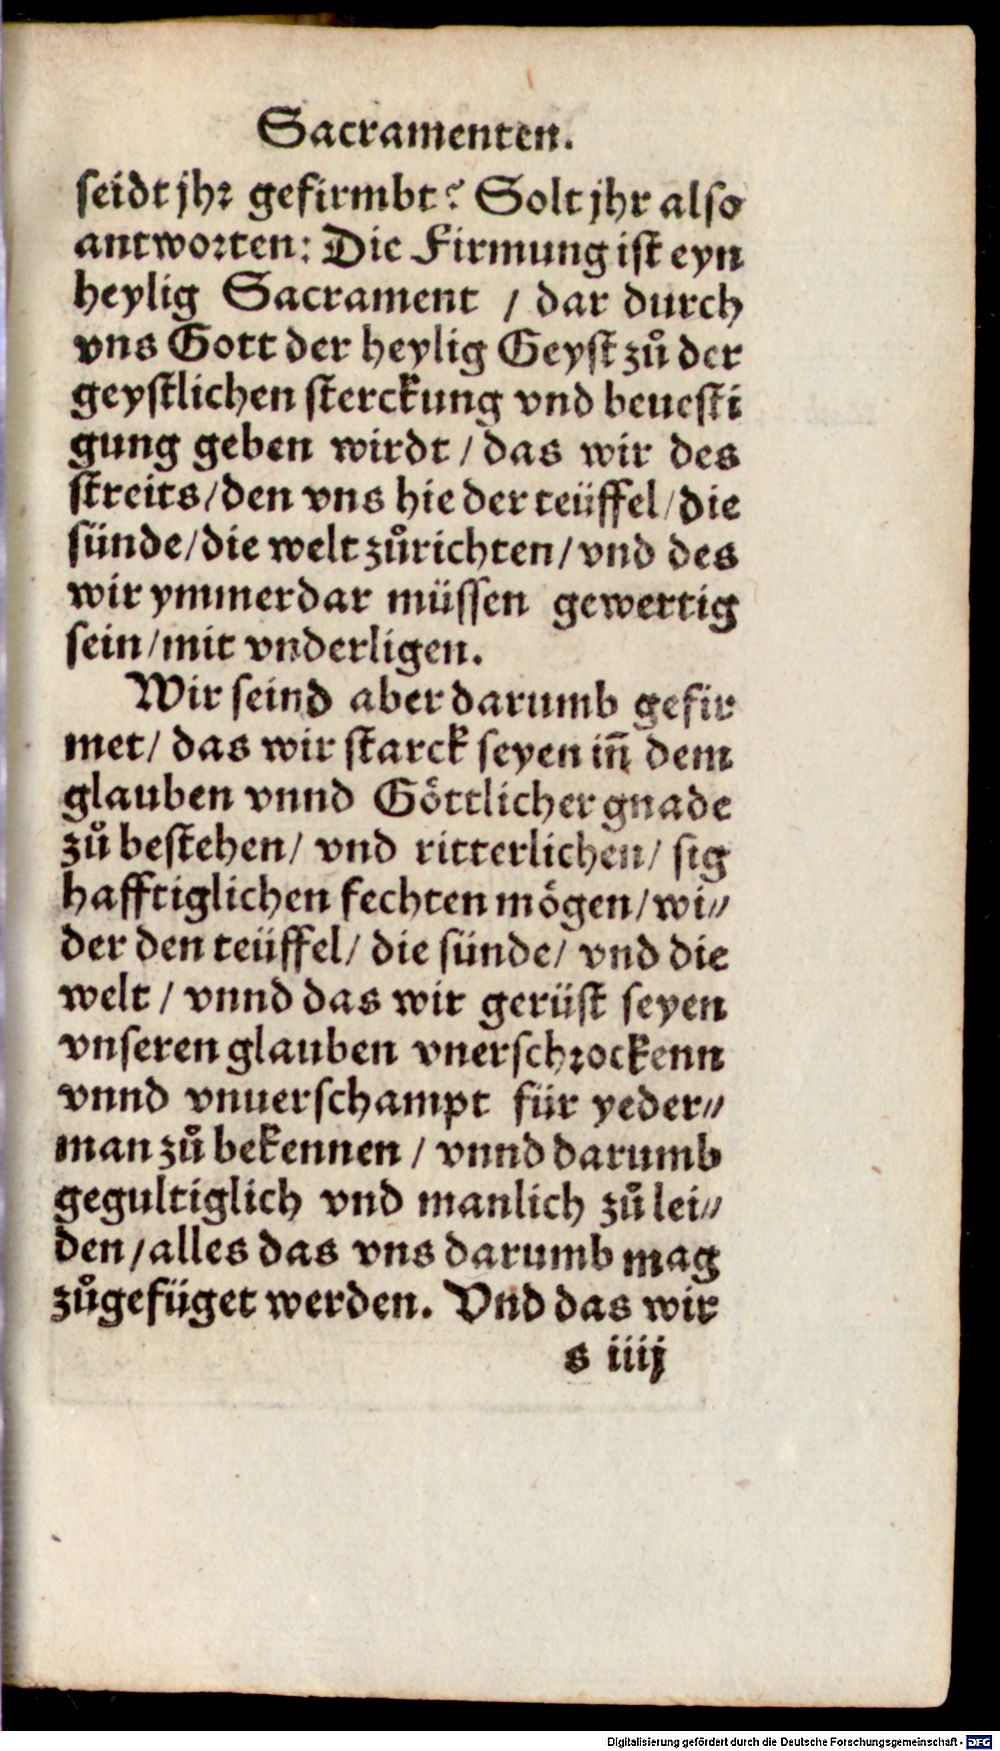 Sacramenten.
seidt jhr gefirmbt? Solt jhr also
antworten: Die Firmung ist eyn
heylig Sacrament / dar durch
vns Gott der heylig Geyst zů der
geystlichen sterckung vnd beuesti
gung geben wirdt / das wir des
streits / den vns hie der teüffel / die
sünde / die welt zůrichten / vnd des
wir ymmerdar müssen gewertig
sein / mit vnderligen.
Wir seind aber darumb gefir
met / das wir starck seyen iñ dem
glauben vnnd Göttlicher gnade
zů bestehen / vnd ritterlichen / sig
hafftiglichen fechten mögen / wi⸗
der den teüffel / die sünde / vnd die
welt / vnnd das wir gerüst seyen
vnseren glauben vnerschrockenn
vnnd vnuerschampt für yeder⸗
man zů bekennen / vnnd darumb
gegultiglich vnd manlich zů lei⸗
den / alles das vns darumb mag
zůgefüget werden. Vnd das wir
s iiij
Digitalisierung gefördert durch die Deutsche Forschungsgemeinschaft - DFG